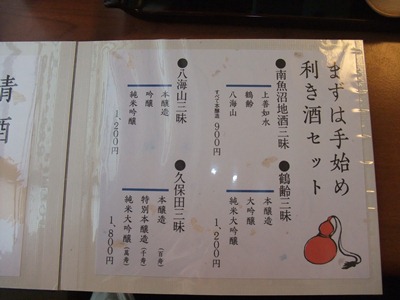 まずは手始め
利き酒セット
●南魚沼地酒三昧
上善如水
鶴齢
八海山
すべて本醸造
900円
●鶴齢三昧
本醸造
大吟醸
純米大吟醸
1,200円
●八海山三昧
本醸造
吟醸
純米吟醸
1,200円
●久保田三昧
本醸造(百寿)
特別本醸造(千寿)
純米大吟醸(萬寿)
1,800円
清酒